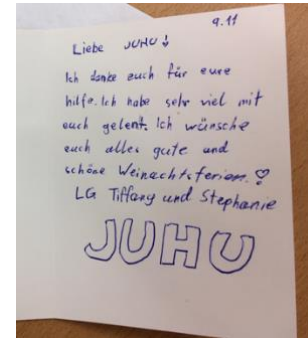 9.11
Liebe JUHU!
Ich danke euch für eure
hilfe. Ich habe sehr viel mit
euch gelent. Ich wünsche
euch alles gute und
schöne Weinachtsferien.
LG Tiffany und Stephanie
JUHU